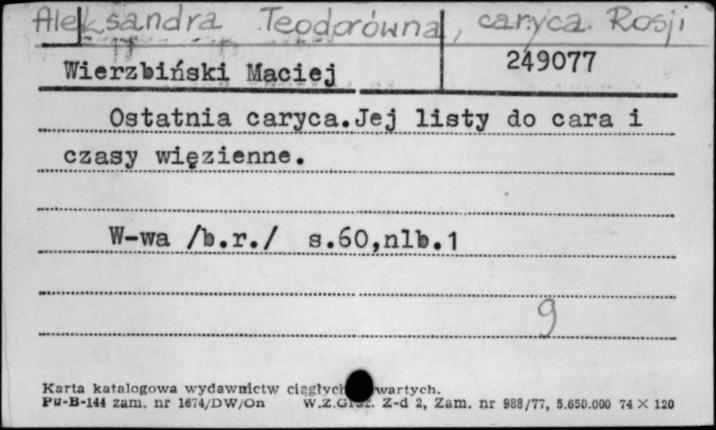 Aleksandra Teodorówna, caryca Rosji
Wierzbiński Maciej
249077
Ostatnia caryca.Jej listy do cara i
czasy więzienne.
W-wa /b.r./ s.60,nlb.1
9
Karta katalogowa wydawnictw ciągłych wartych.
Pu-B-144 zam. nr 1674/DW/On W.Z.Graf. Z-d 2, Zam. nr 988/77, 5.650.000 74 X 120